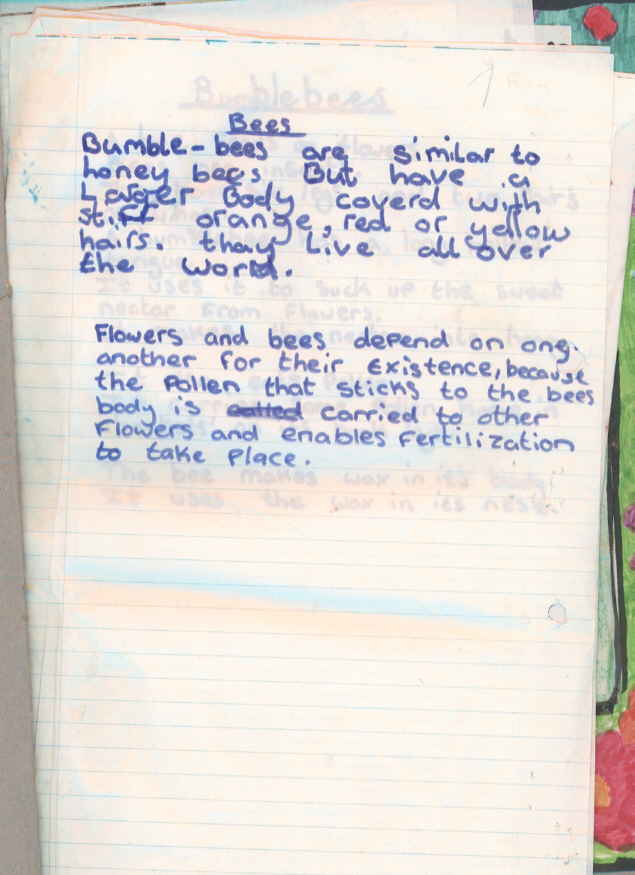 Bees
Bumble-bees are similar to
honey bees But have a
Larger Body coverd with
stiff orange, red or yellow
hairs. thay Live all over
the world.
Flowers and bees depend on one
another for their Existence, because
the Pollen that sticks to the bees
body is called carried to other
Flowers and enables Fertilization
to take Place.
Bumblebees
It uses it to suck up the sweet
nectar from flowers.
The bee makes wax in its body.
It uses the wax in its nest.